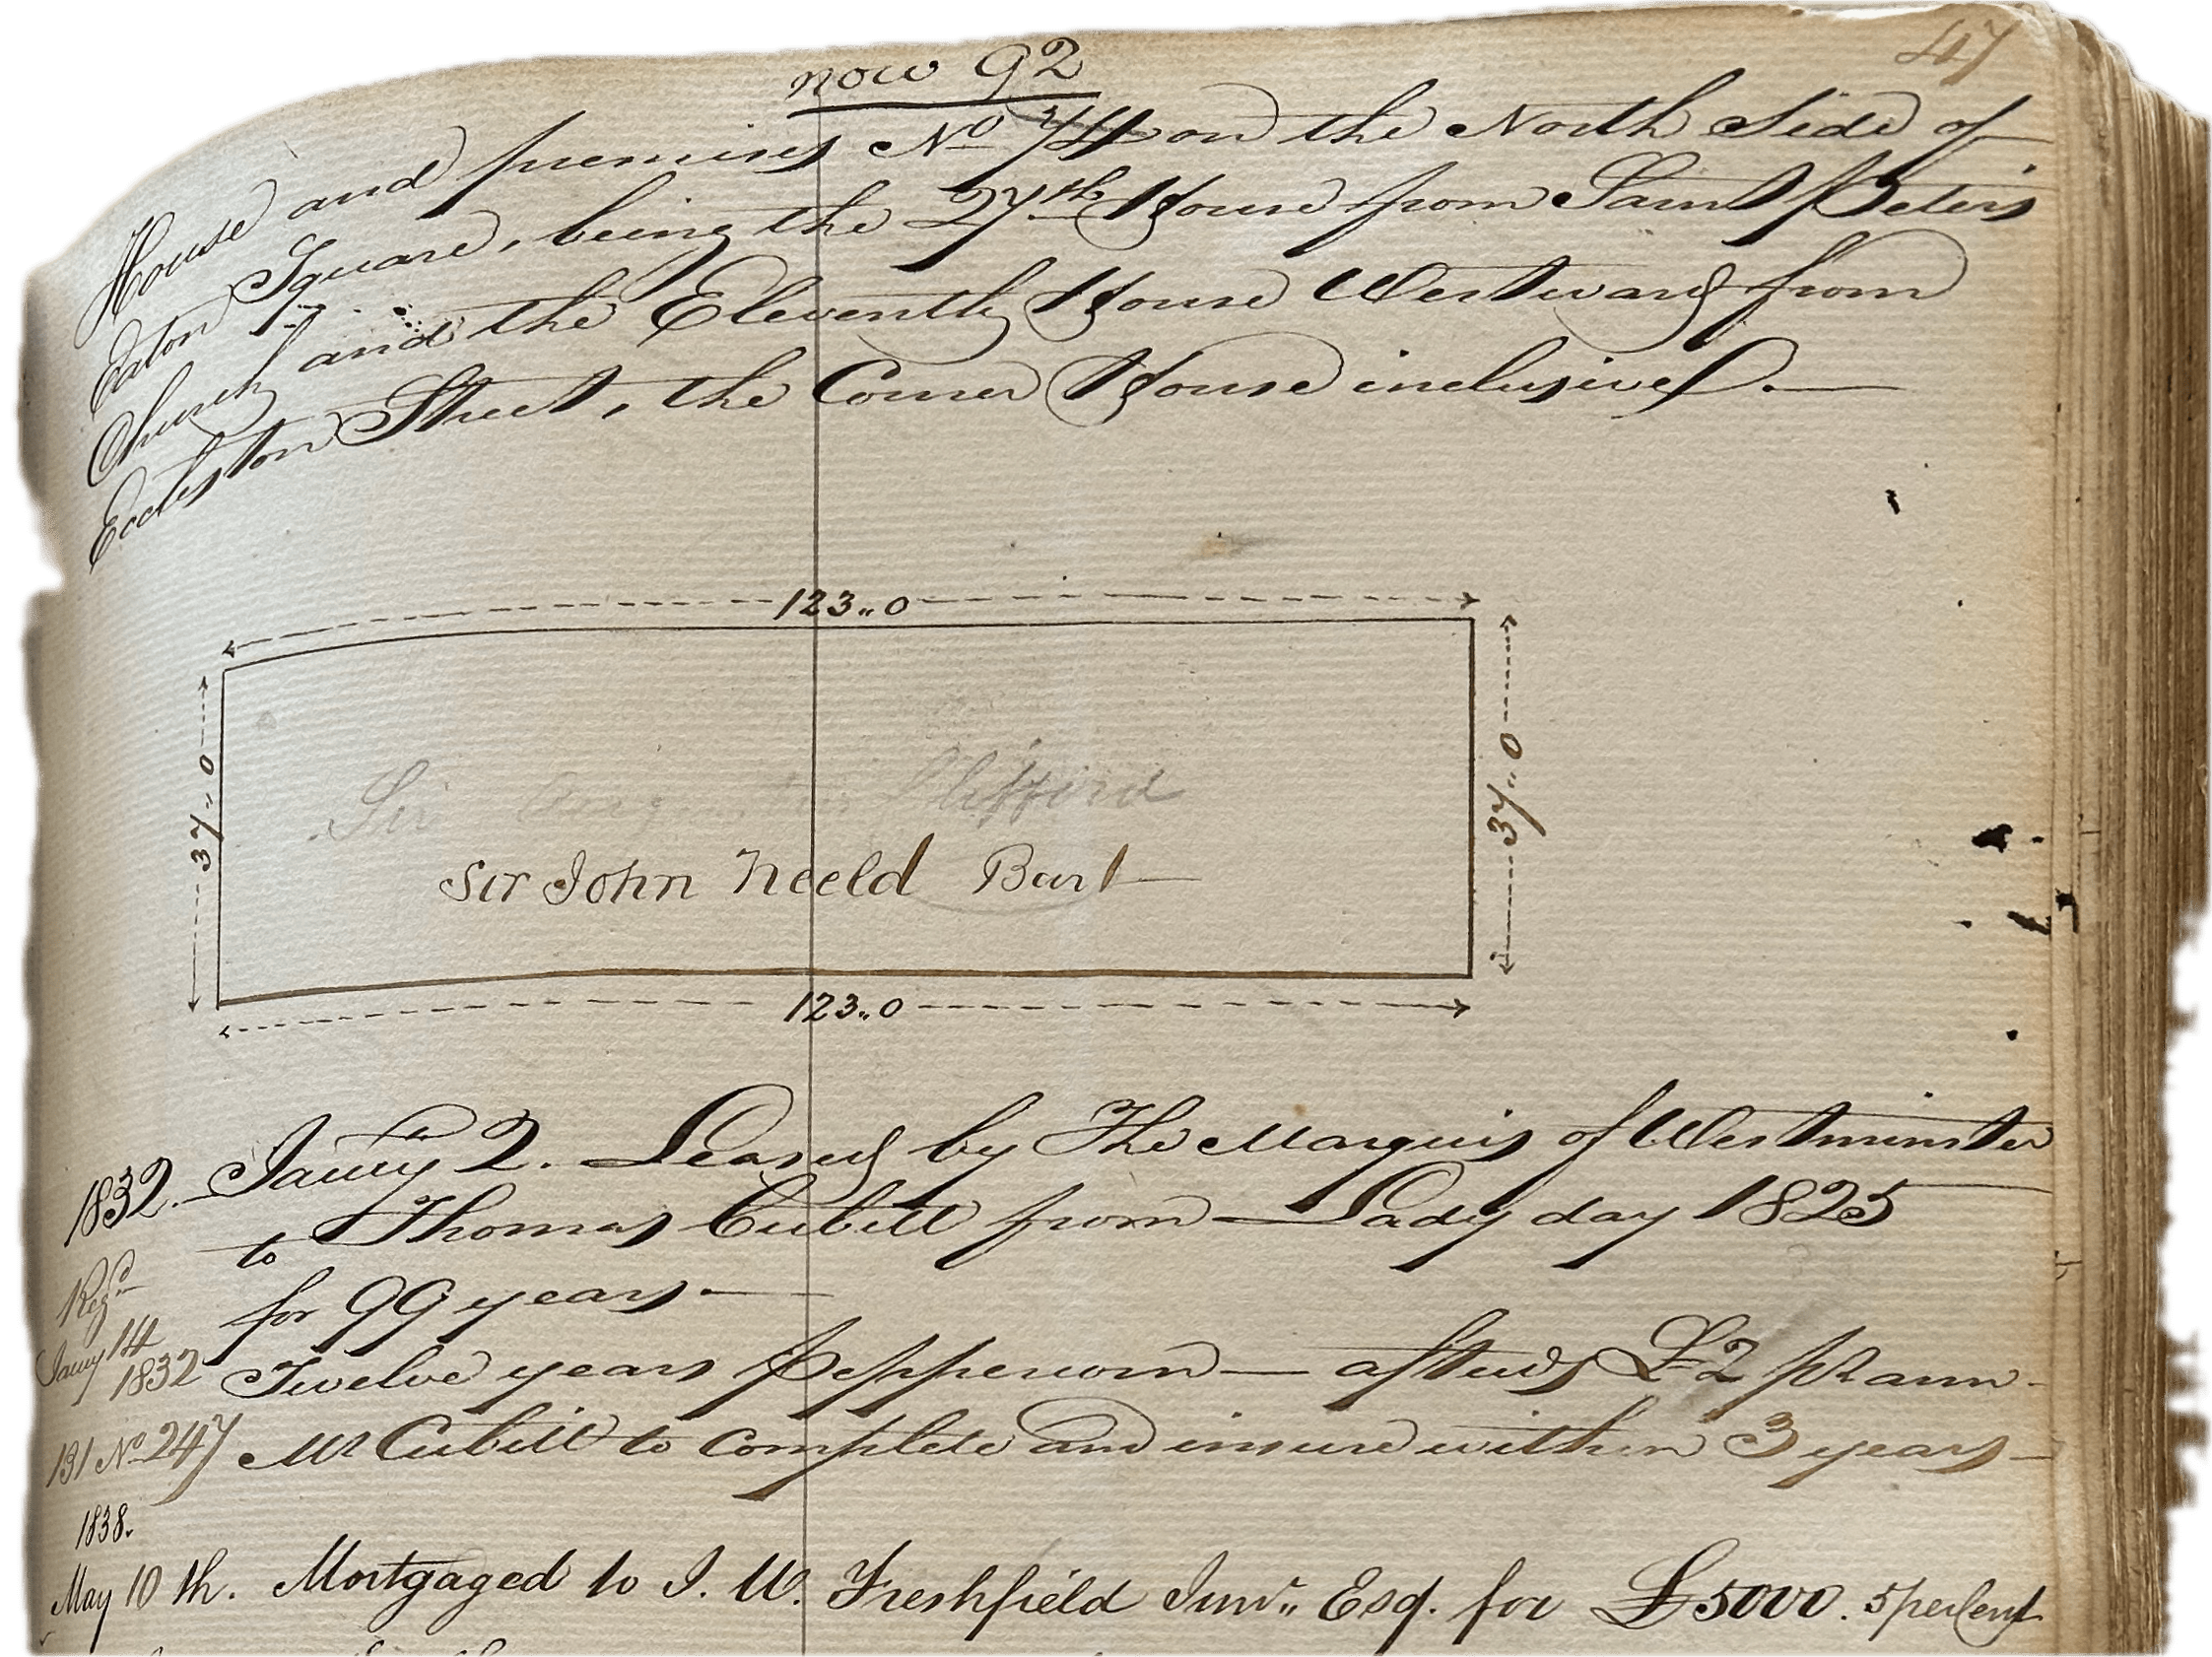 47
now 92
House and premises No 74 on the North Side of
Eaton Square, being the 27th House from Saint Peters
Church and the Eleventh House Westward from
Eccleston Street, the Corner House inclusive.—
123..0
37..0
37..0
Sir Augustus Clifford
Sir John Neeld Bart
123..0
1832. Jauy 2. Leased by The Marquis of Westminster
to Thomas Cubitt from Lady day 1825
for 99 years.—
Regd
Jauy 14
1832
Twelve years Peppercorn — afterwds £2 pr ann.
131 No 247
Mr Cubitt to complete and insure within 3 years—
1838.
May 10th. Mortgaged to J. W. Freshfield Junr.. Esq. for £5000. 5 per Cent